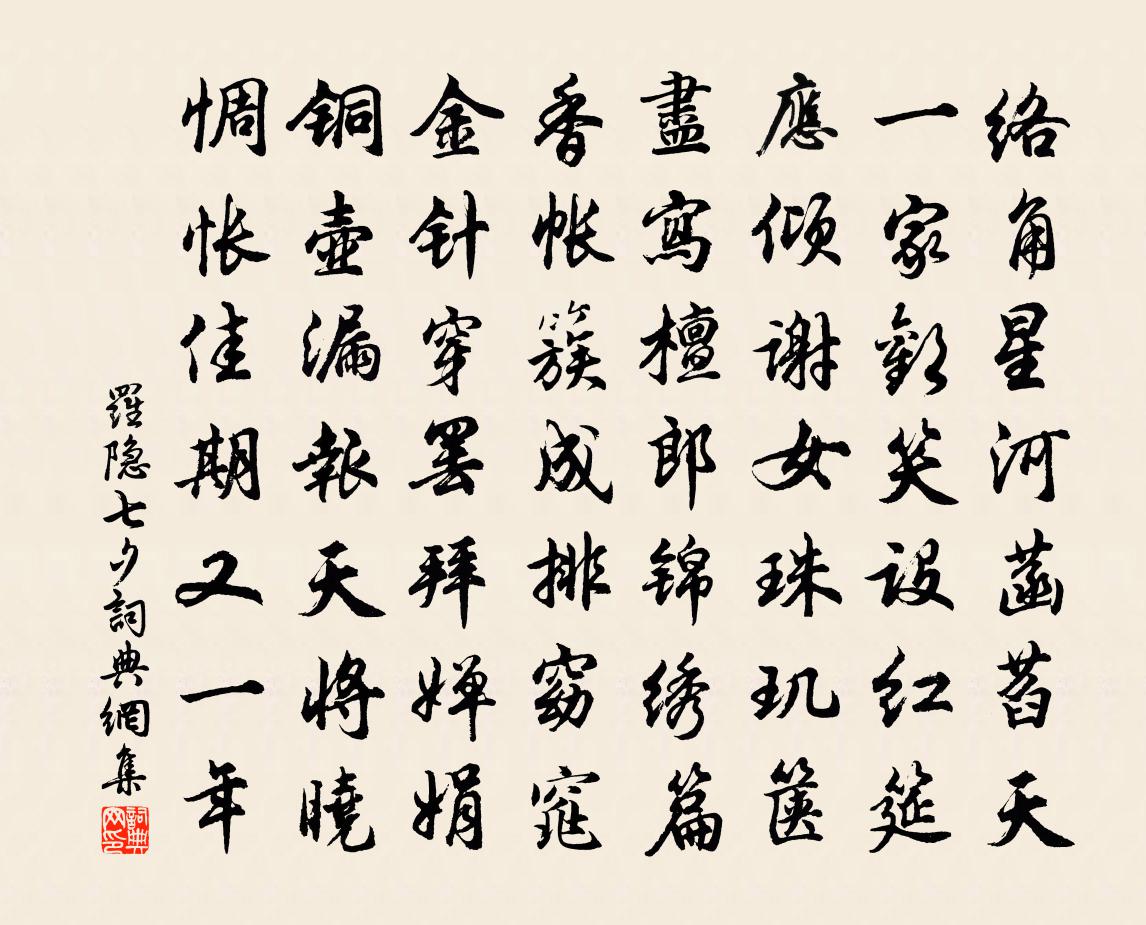 络角星河菡萏天
一家歡笑设红筵
應倾谢女珠玑箧
盡寫檀郎锦绣篇
香帐簇成排窈窕
金针穿罢拜婵娟
铜壶漏報天将曉
惆怅佳期又一年
羅隐七夕詞典網集
詞典网印